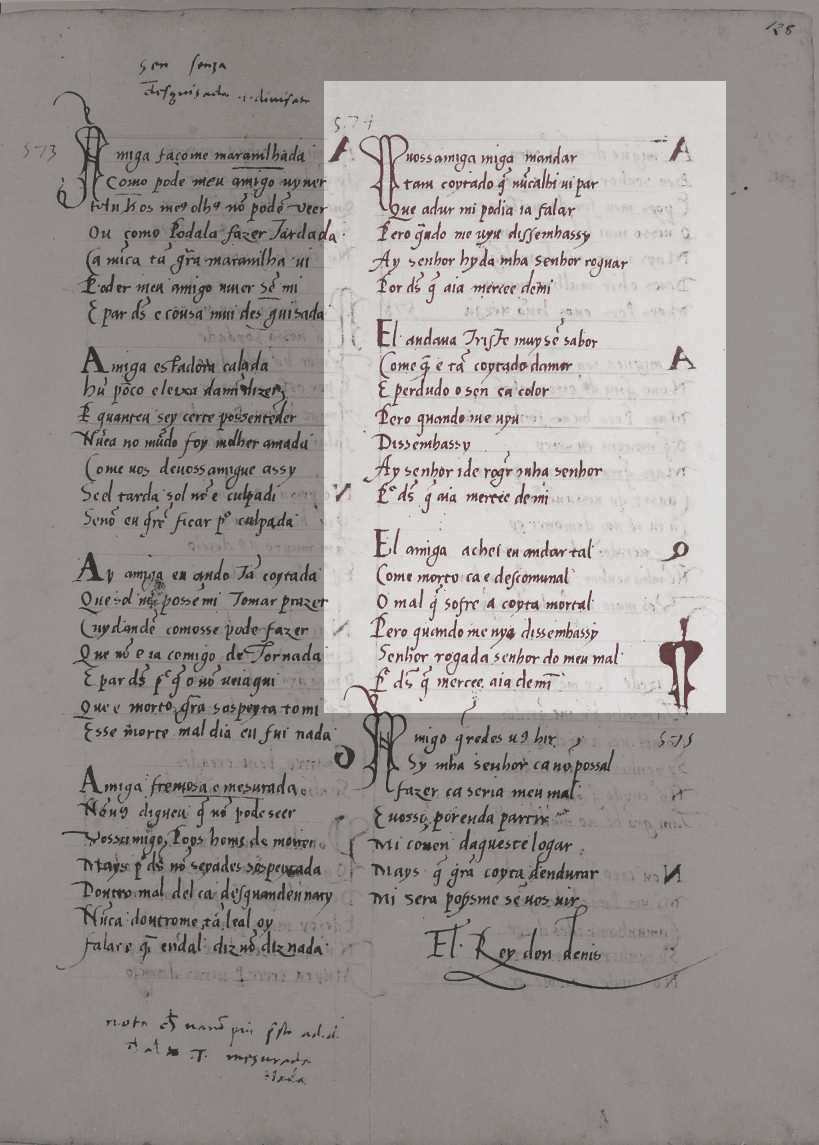 128
sen senza
573
Amiga façome maravilhada
Como pode meu amigo vyver
hu os meus olhos nõ podẽ veer
Ou como Podala fazer Tardada
Ca nũca tã grã maravilha vi
Poder meu amigo viver sẽ mi
E par ds̃ e cousa mui des guisada
Amiga estade calada
hũ põco e leixa damĩ dizer
E quanteu sey certe possentẽder
Nũca no mũdo foy molher amada
Come vos devossamigue assy
Se el tarda sol nõ e culpadi
Senõ eu q̃re ficar pº culpada
Ay amiga eu ando Tã coytada
Que sol nõ posse mi Tomar prazer
Cuydandẽ comosse pode fazer
Que nõ e ia comigo de Tornada
E par ds̃ pº q̃ o nõ veia qui
Que e morto grã sospeyta tomi
Esse morte mal dia eu fui nada
Amiga fremosa e mesurada
Nõvus digueu q̃ nõ pode seer
Vossamigo, Poys home de morrer
Mays pº ds̃ nõ seyades sospeytada
Doutro mal del ca desquandeu nacy
Nũca doutrome tã leal oy
falar e q̃ endal diz nõ diz nada
nota
mesurada
574
Vossamiga miga mandar
tam coytado q̃ nũcalhi vi par
Que adur mi podia ia falar
Pero q̃ndo me vyu dissembassy
Ay senhor hyda mha senhor roguar
Por ds̃ q̃ aia mercee demi
El andava Triste muy sẽ sabor
Come q̃ e tã coytado damor
E perdudo o sen ea color
Pero quando me vyu
Dissembassy
Ay senhor ide rogr̃ mha senhor
Pº ds̃ q̃ aia mercee demi
El amiga achei eu andar tal
Come morto ca e descomunal
O mal q̃ sofre a coyta mortal
Pero quando me vyu dissembassy
Senhor rogada senhor do meu mal
Pº ds̃ q̃ mercee aia demĩ
575
Amigo q̃redes vus hir
Sy mha senhor ca nõ possal
fazer ca seria meu mal
E vosso porenda partir
Mi conven daqueste logar
Mays q̃ grã coyta dendurar
Mi sera poysme sẽ vos vir
El Rey don denis